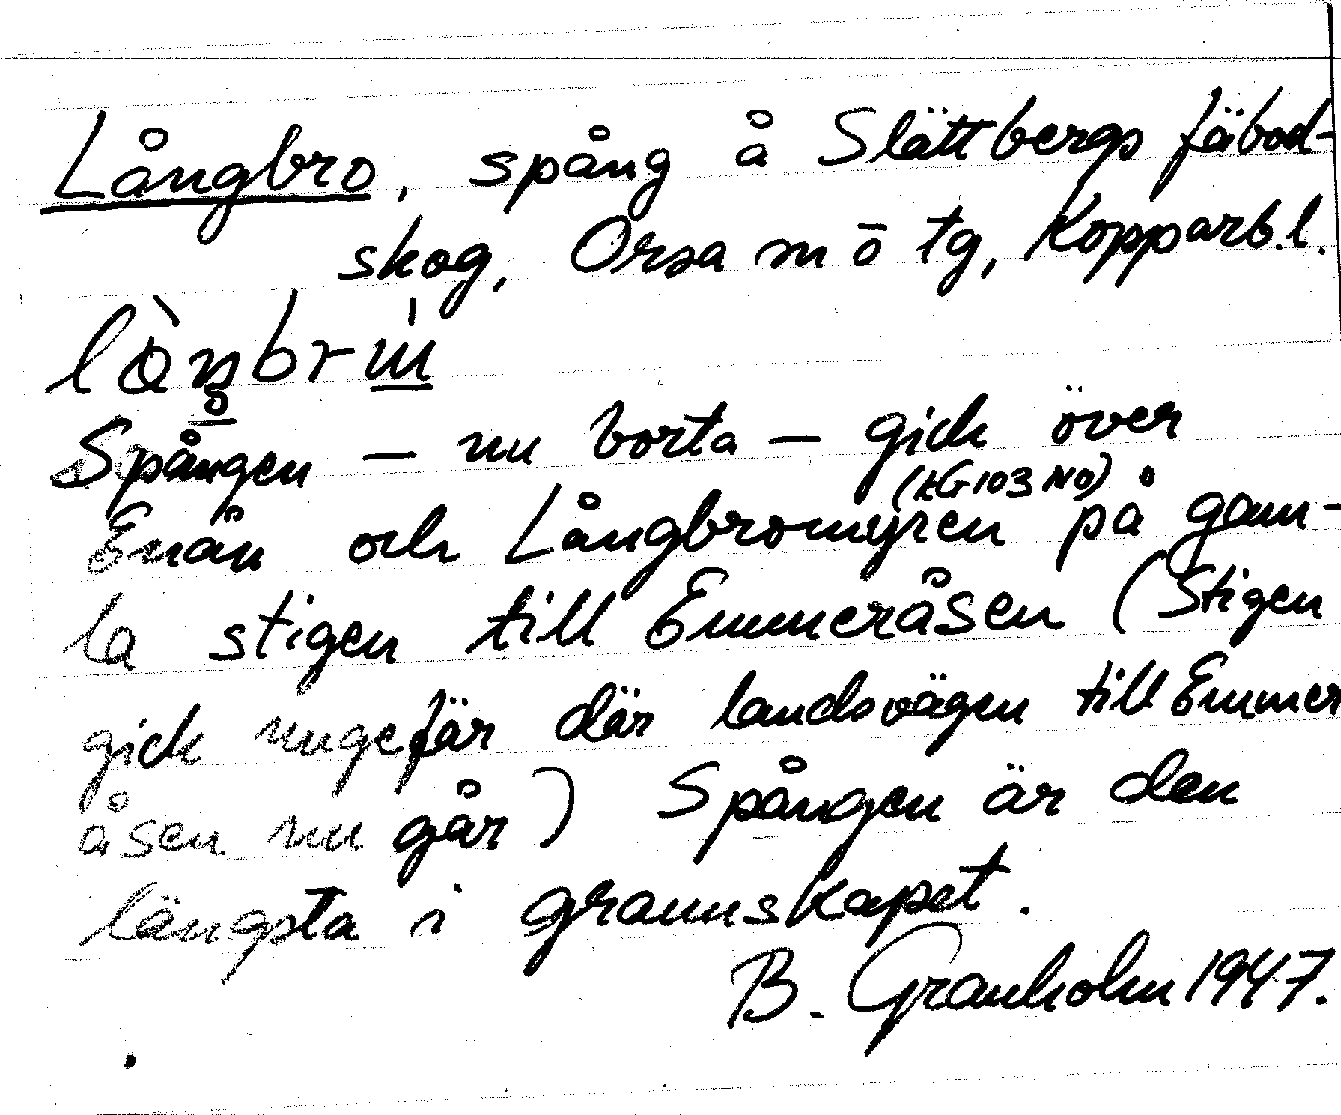 Långbro, spång å Slättbergs fäbod-
skog, Orsa sn ō tg, Kopparb.l.
Spången – nu borta – gick över
(EG103 NO)
Enån och Långbromyren på gam-
la stigen till Emmeråsen (Stigen
gick ungefär där landsvägen till Emmer
åsen nu går) Spången är den
längsta i grannskapet.
B. Granholm 1947.